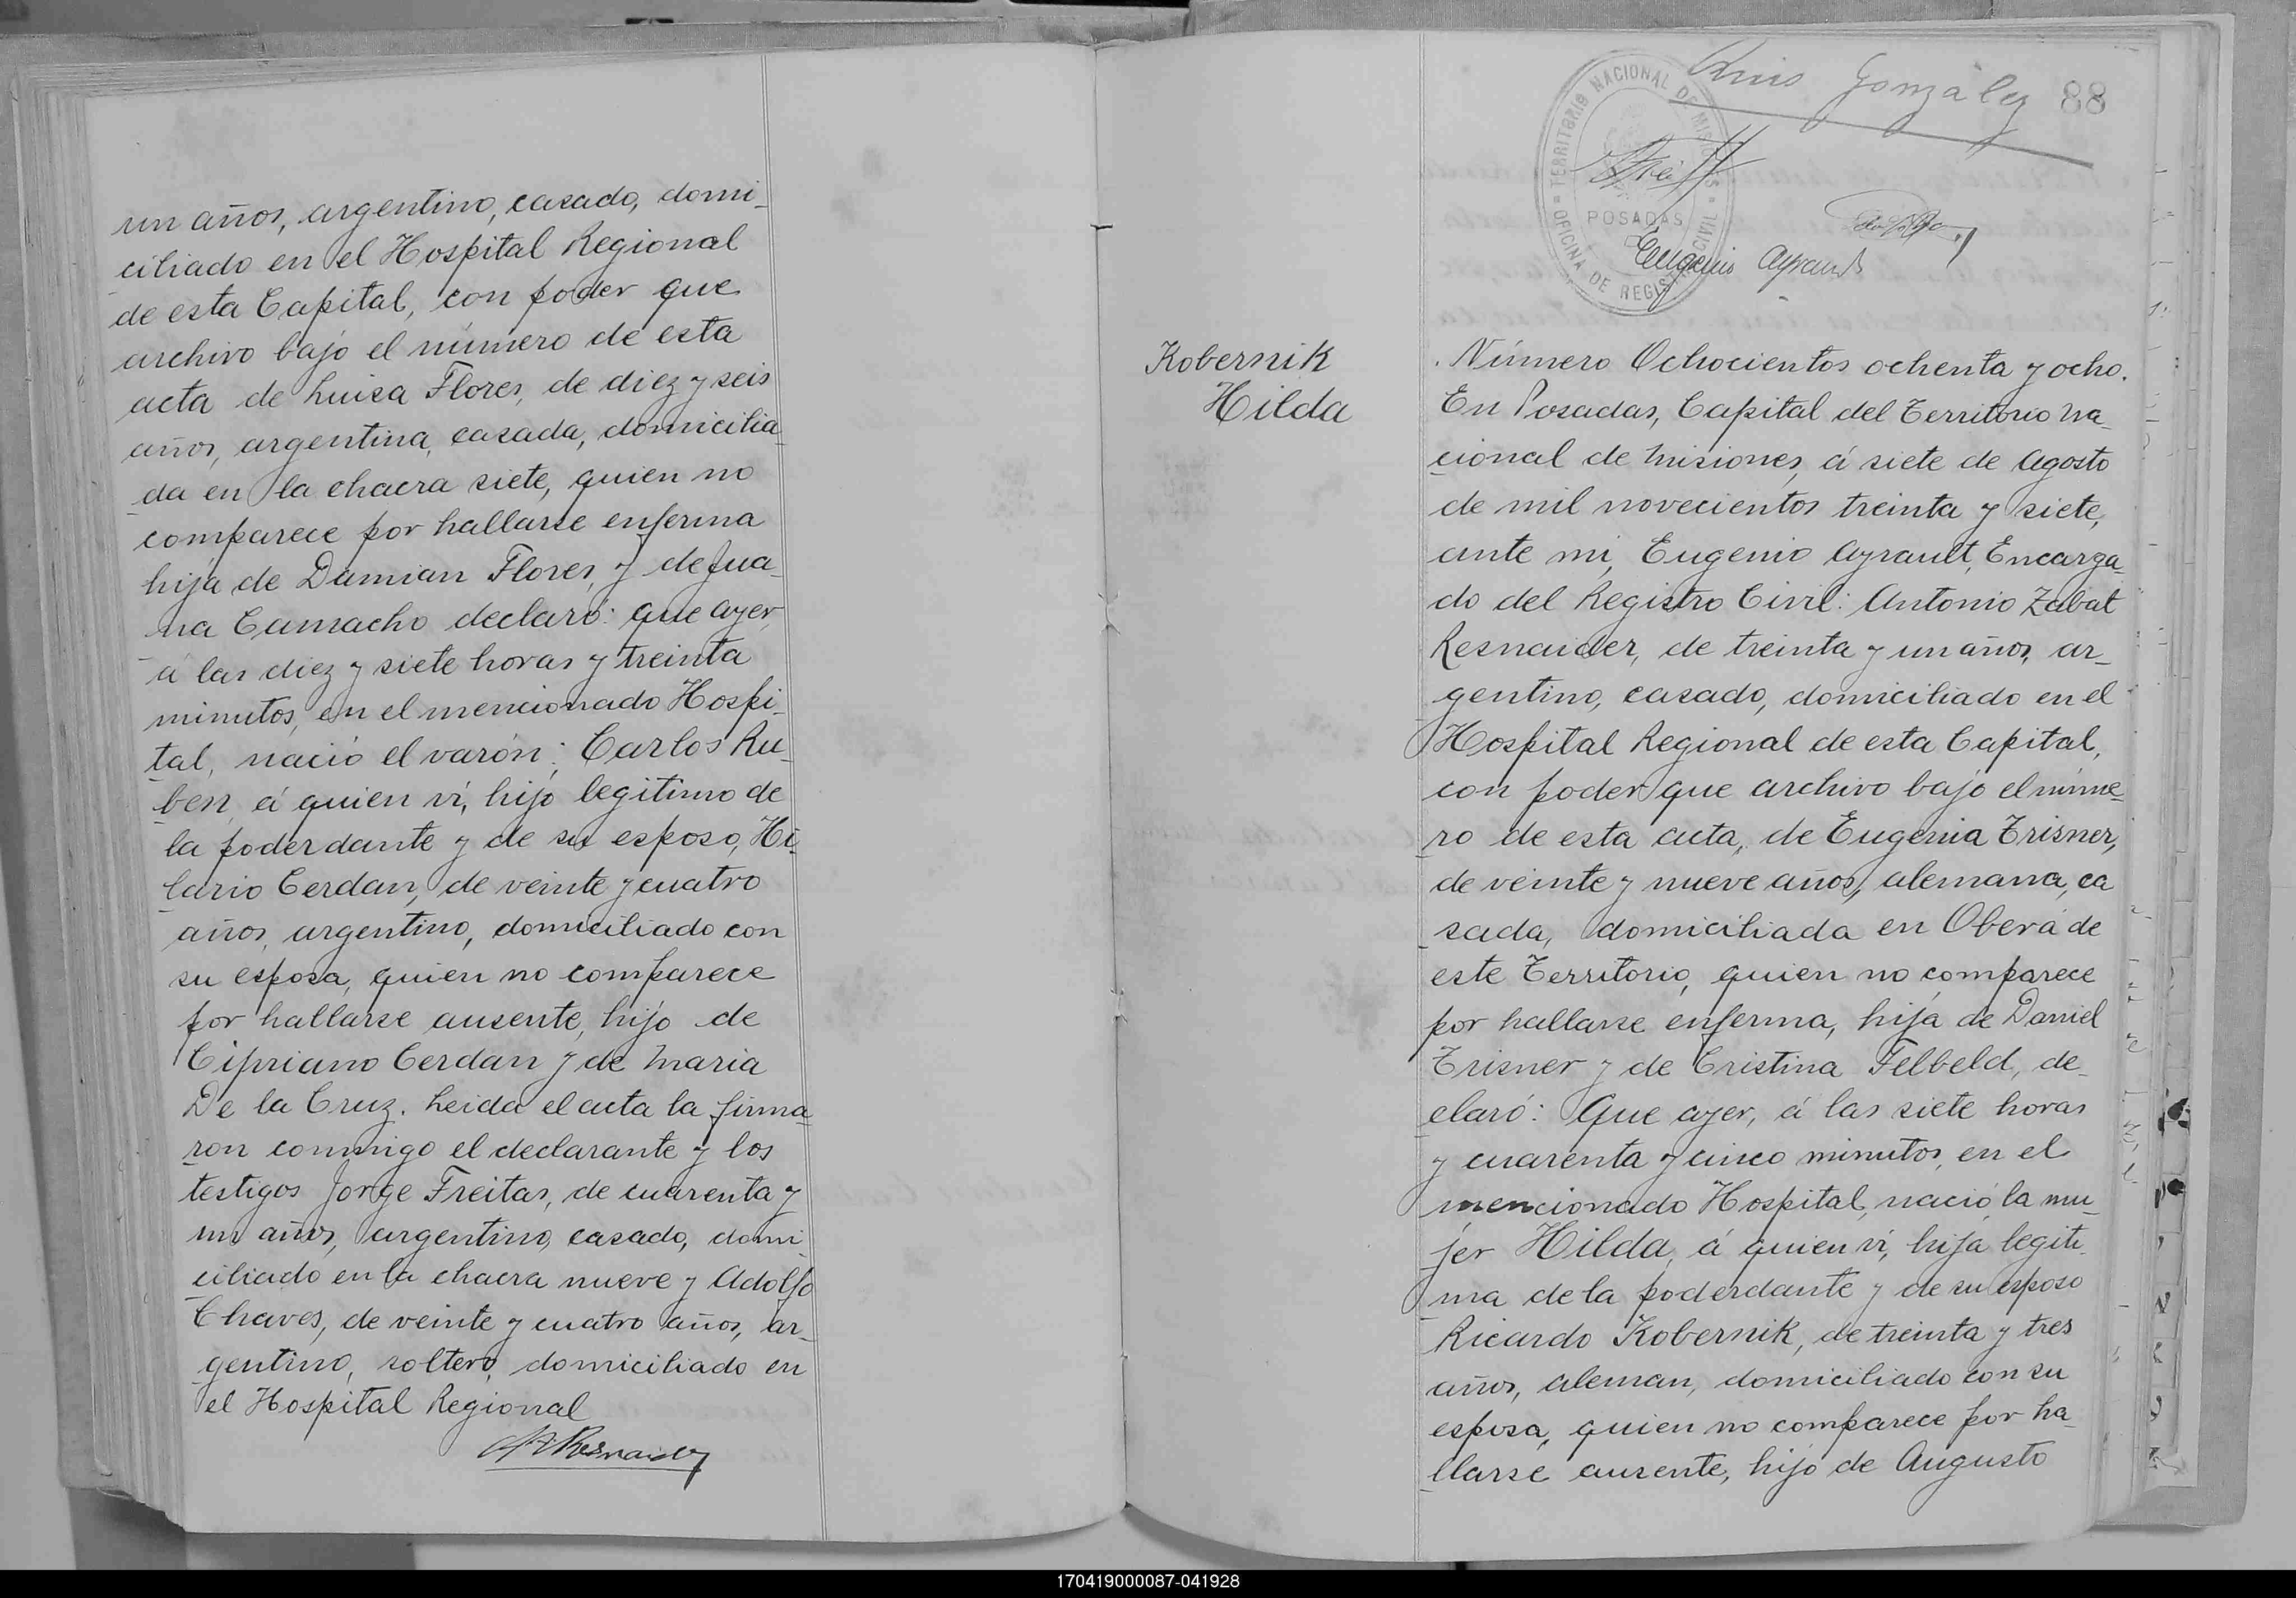 un años, argentino, casado, domi_
ciliado en el Hospital Regional
de esta Capital, con poder que
archivo bajo el número de esta
acta de Luisa Flores, de diez y seis
años, argentina, casada, domicilia_
da en la chacra siete, quien no
comparece por hallarse enferma
hija de Damian Flores, y de Jua_
na Camacho declaró: que ayer,
á las diez y siete horas y treinta
minutos, en el mencionado Hospi_
tal, nació el varón: Carlos Ru_
ben, á quien ví, hijo legitimo de
la poderdante y de su esposo, Hi_
lario Cerdan, de veinte y cuatro
años, argentino, domiciliado con
su esposa, quien no comparece
por hallarse ausente, hijo de
Cipriano Cerdan y de Maria
De la Cruz. Leida el acta la firma_
ron conmigo el declarante y los
testigos Jorge Freitas, de cuarenta y
un años, argentino, casado, domi_
ciliado en la chacra nueve y Adolfo
Chaves, de veinte y cuatro años, ar_
gentino, soltero, domiciliado en
el Hospital Regional
Luis González 88
TERRITORIO NACIONAL DE MISIONES
POSADAS
OFICINA DE REGISTRO CIVIL
Eugenio Ayrault
Kobernik
Hilda
Número Ochocientos ochenta y ocho.
En Posadas, Capital del Territorio Na_
cional de Misiones, á siete de Agosto
de mil novecientos treinta y siete,
ante mi, Eugenio Ayrault, Encarga_
do del Registro Civil: Antonio Zabat
Resnaider, de treinta y un años, ar_
gentino, casado, domiciliado en el
Hospital Regional de esta Capital,
con poder que archivo bajo el núme_
ro de esta acta, de Eugenia Trisner,
de veinte y nueve años, alemana, ca
sada, domiciliada en Oberá de
este Territorio, quien no comparece
por hallarse enferma, hija de Daniel
Trisner y de Cristina Felbeld, de_
claró: Que ayer, á las siete horas
y cuarenta y cinco minutos, en el
mencionado Hospital, nació la mu_
jer Hilda, á quien ví, hija legiti_
ma de la poderdante y de su esposo
Ricardo Kobernik, de treinta y tres
años, aleman, domiciliado con su
esposa, quien no comparece por ha_
llarse ausente, hijo de Augusto
170419000087-041928